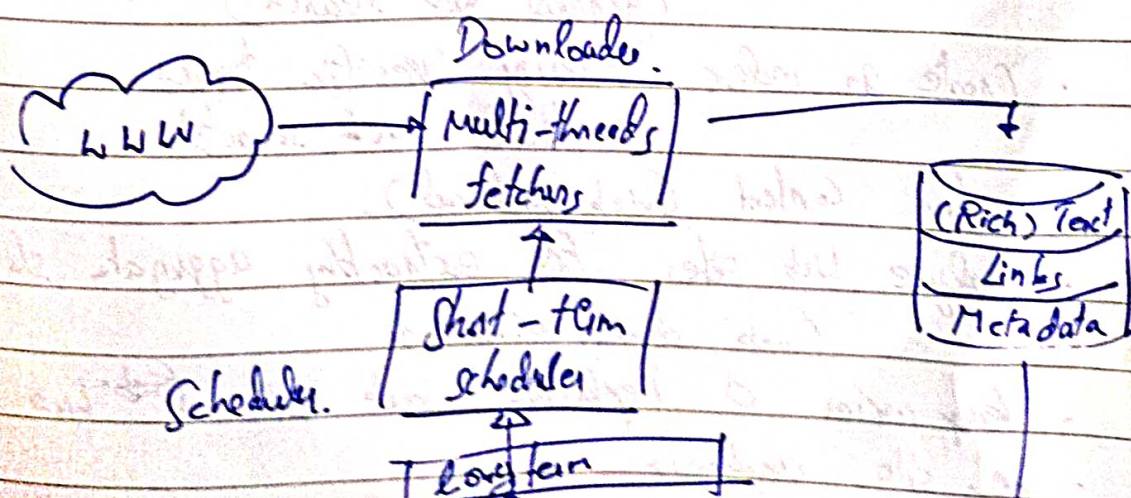 Downloader.
WWW
Multi-threads
fetchers
(Rich) Text
Links
Metadata
Short-term
scheduler
Scheduler.
Long term